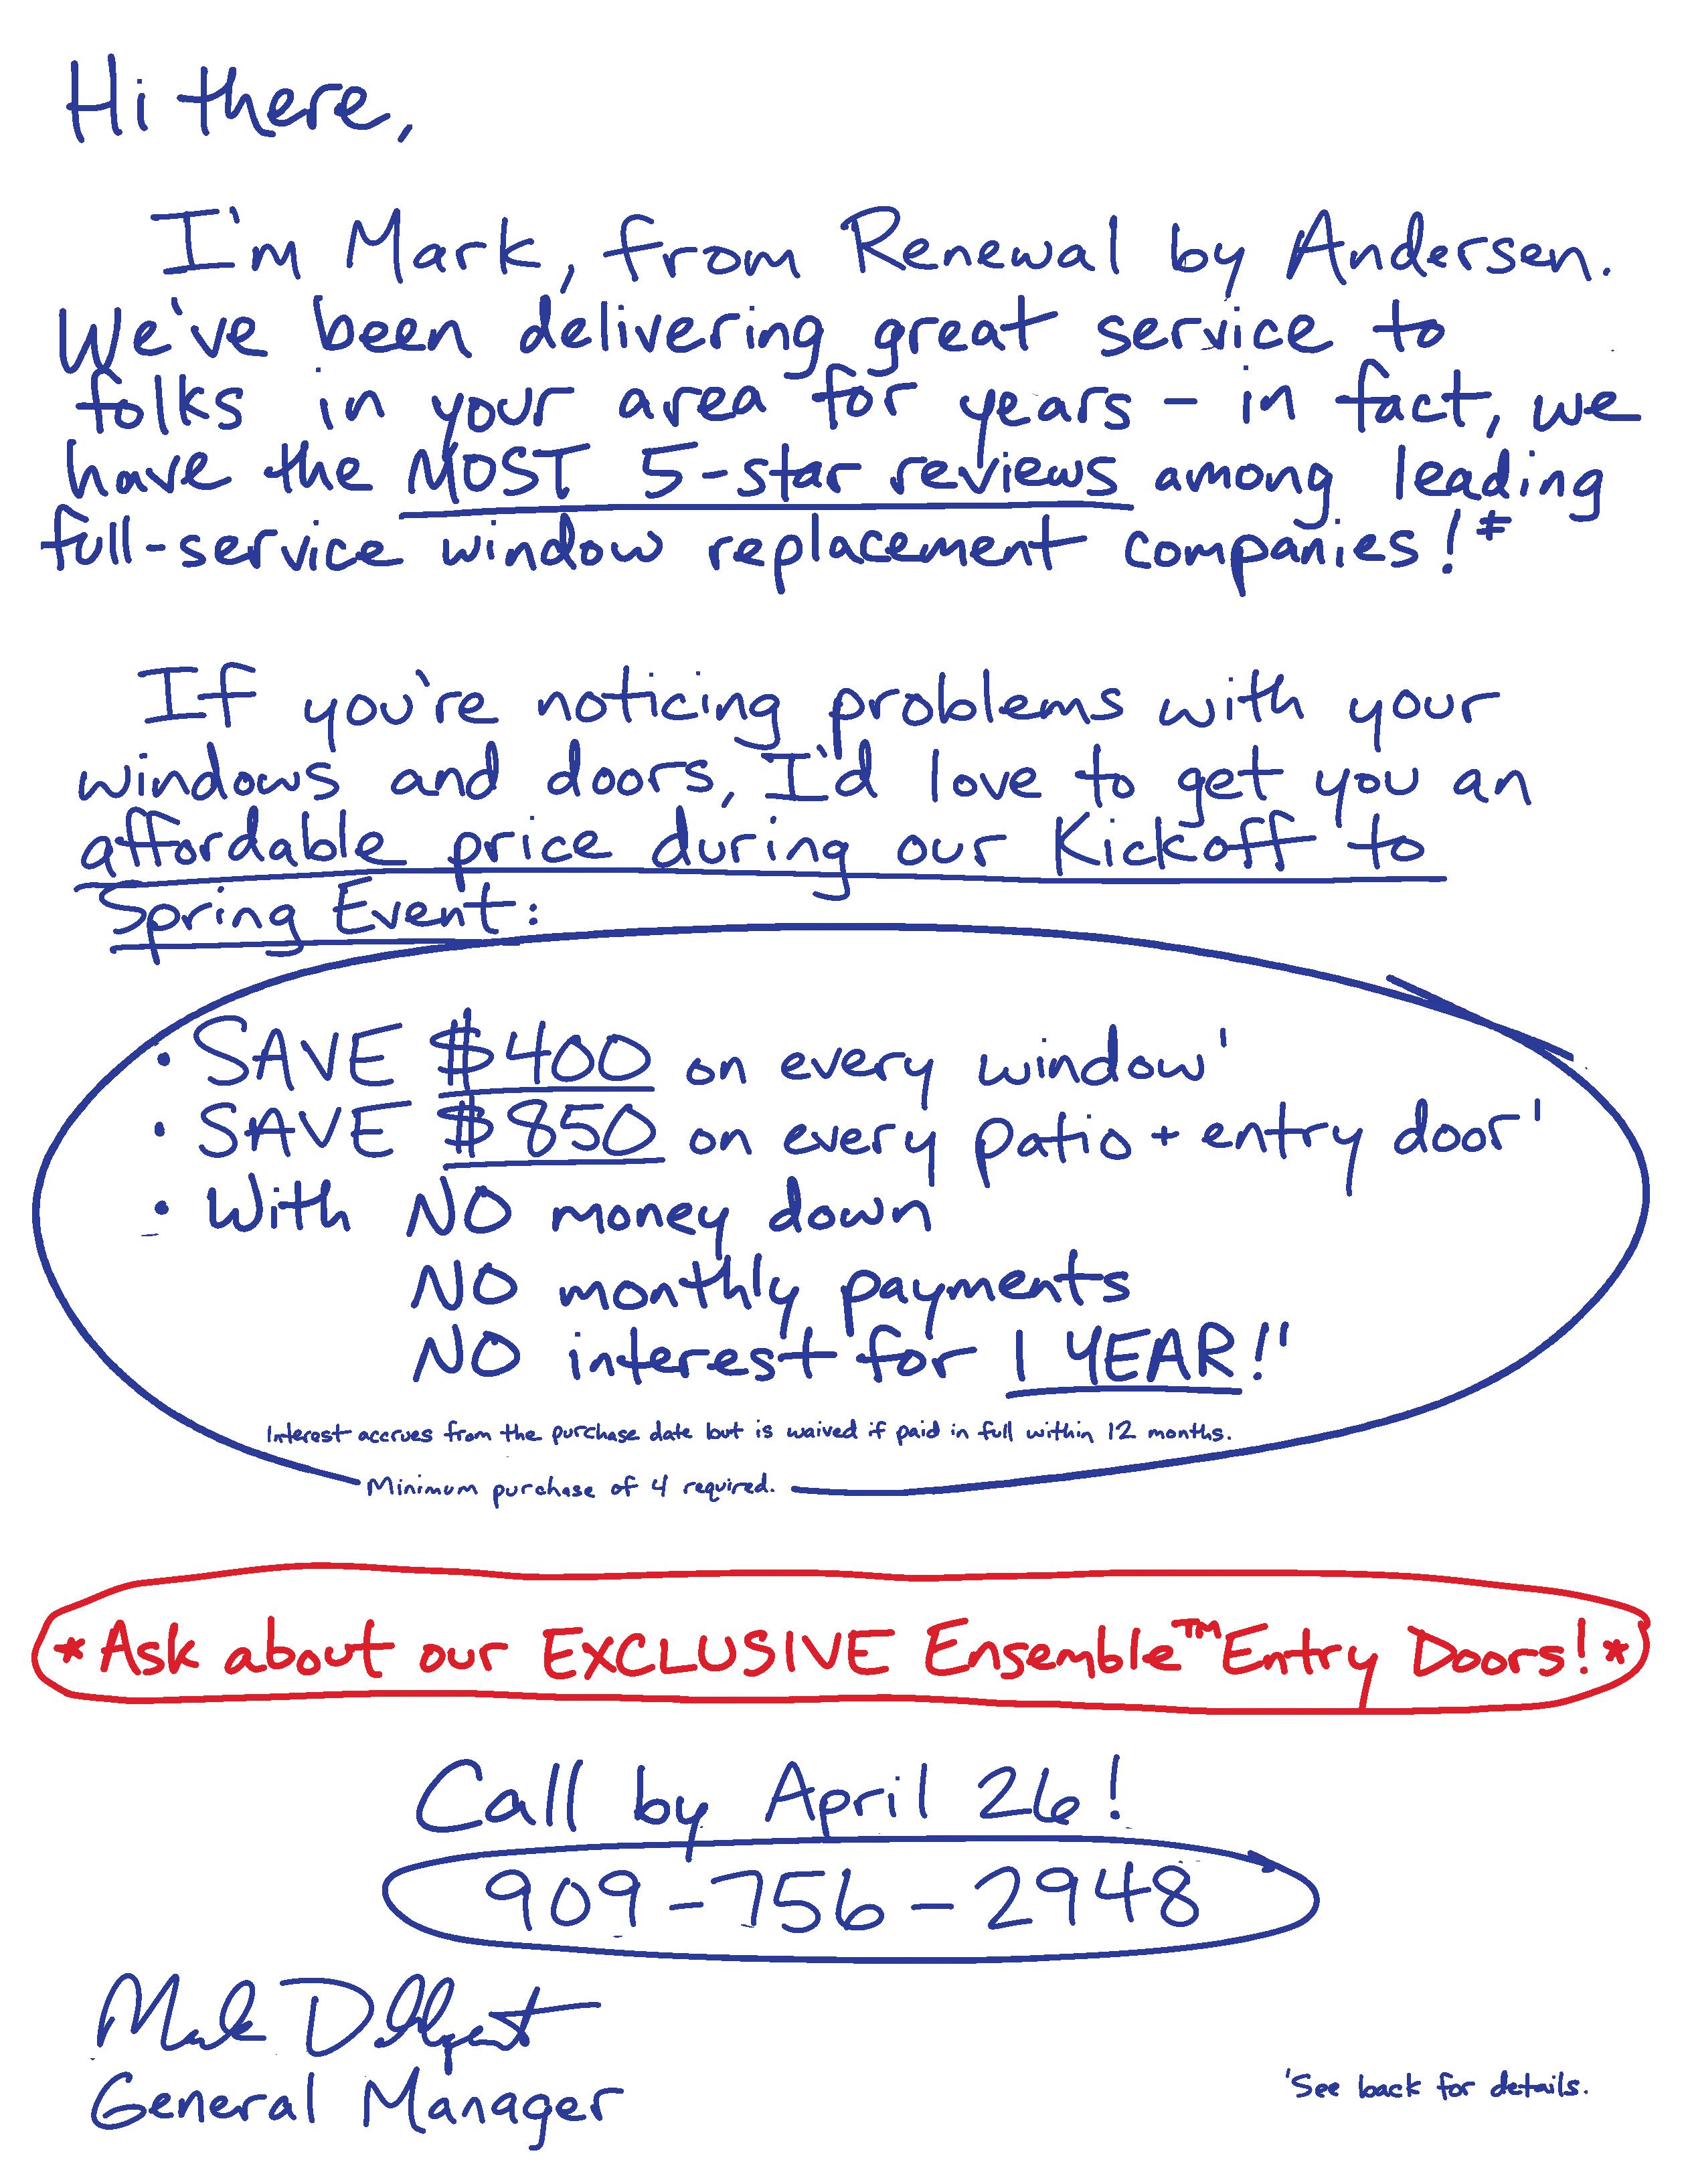 Hi there,
I'm Mark, from Renewal by Andersen.
We've been delivering great service to
folks in your area for years – in fact, we
have the MOST 5-star reviews among leading
full-service window replacement companies!‡
If you're noticing problems with your
windows and doors, I'd love to get you an
affordable price during our Kickoff to
Spring Event:
• SAVE $400 on every window¹
• SAVE $850 on every patio + entry door¹
• With NO money down
NO monthly payments
NO interest for 1 YEAR!¹
Interest accrues from the purchase date but is waived if paid in full within 12 months.
Minimum purchase of 4 required.
*Ask about our EXCLUSIVE Ensemble™ Entry Doors!*
Call by April 26!
909-756-2948
Mark
General Manager
¹See back for details.